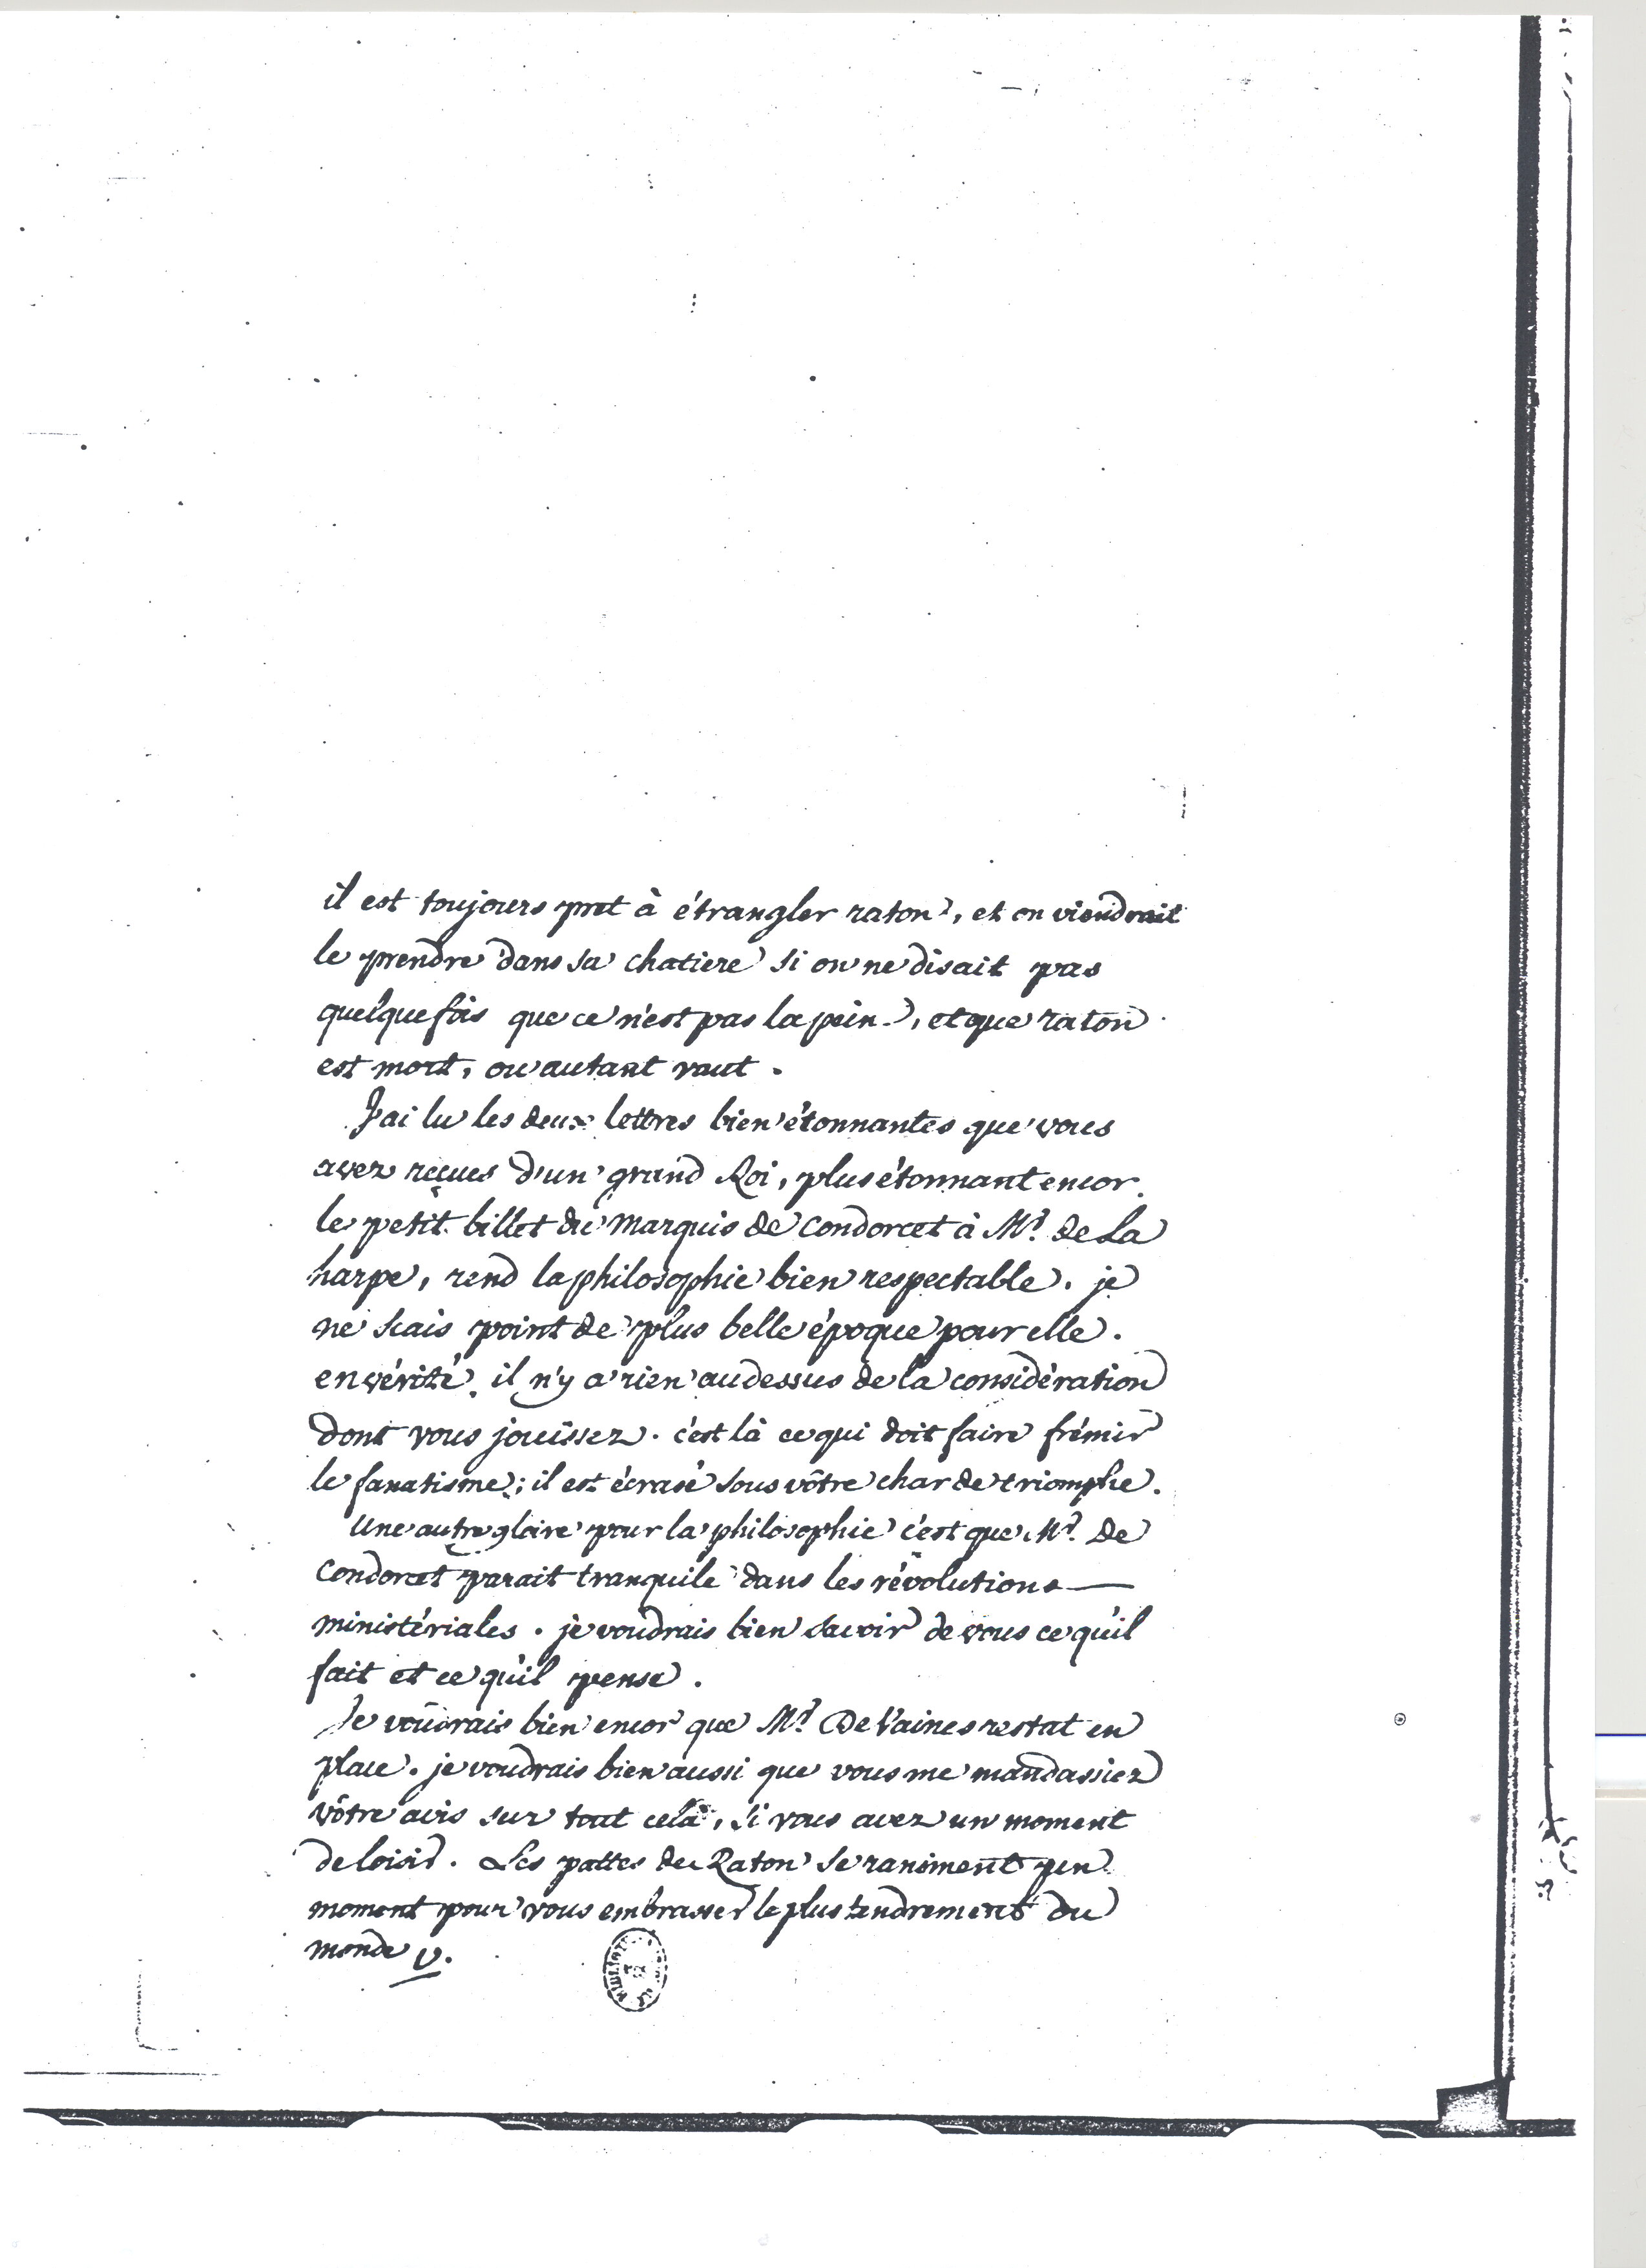 il est toujours pret à étrangler raton, et on viendrait
le prendre dans sa chatiere si on ne disait pas
quelquefois que ce n'est pas la peine, et que raton
est mort, ou autant vaut.
J'ai lu les deux lettres bien étonnantes que vous
avez reçues d'un grand Roi, plus étonnant encor.
le petit billet du Marquis de Condorcet à Mr. de La
harpe, rend la philosophie bien respectable. je
ne scais point de plus belle époque pour elle.
en vérité, il n'y a rien audessus de la considération
dont vous jouissez. c'est là ce qui doit faire frémir
le fanatisme; il est écrasé sous vôtre char de triomphe.
Une autre gloire pour la philosophie c'est que Mr. De
Condorcet parait tranquile dans les révolutions
ministériales. je voudrais bien savoir de vous ce qu'il
fait et ce qu'il pense.
Je voudrais bien encor que Mr. De Vaines restat en
place. je voudrais bien aussi que vous me mandassiez
vôtre avis sur tout cela, si vous avez un moment
de loisir. Les pattes de Raton se raniment un
moment pour vous embrasser le plus tendrement du
monde V.